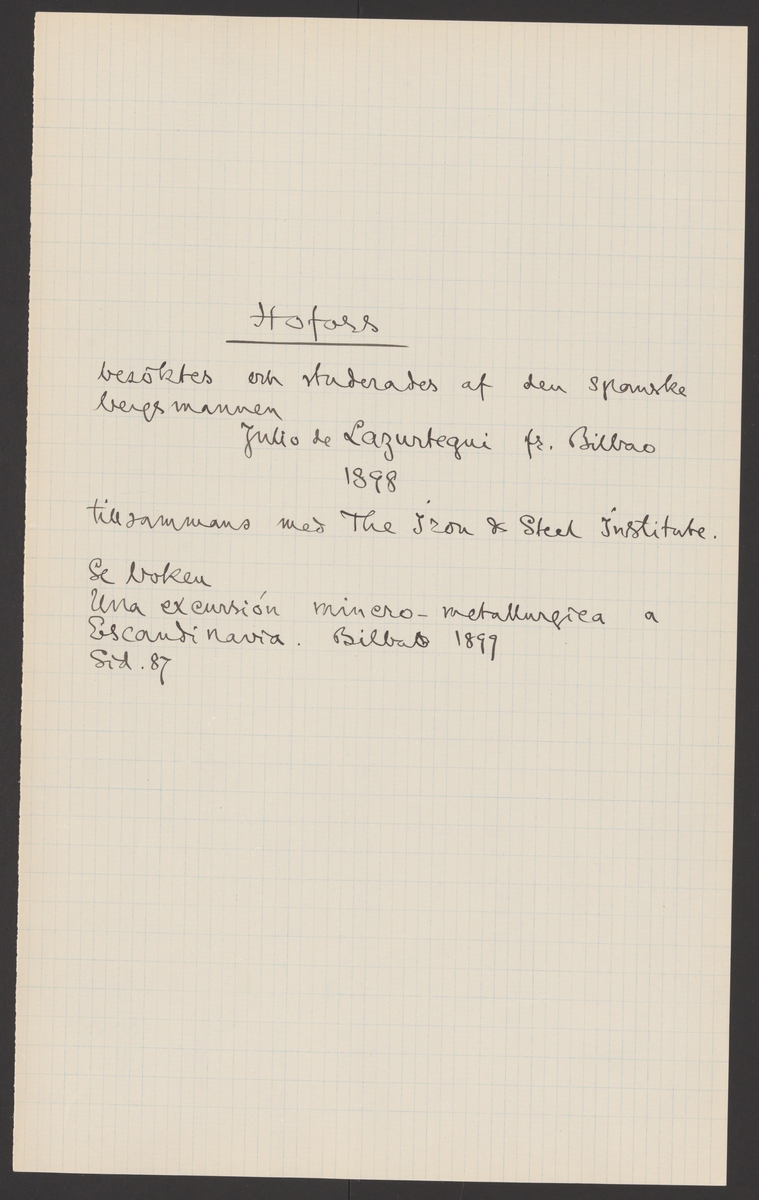 Hofoss
besöktes och studerades af den spanske
bergsmannen
Julio de Lazurtegui fr. Bilbao
1898
tillsammans med The Iron & Steel Institute.
Se boken
Una excursión minero-metallurgica a
Escandinavia. Bilbao 1899
Sid. 87